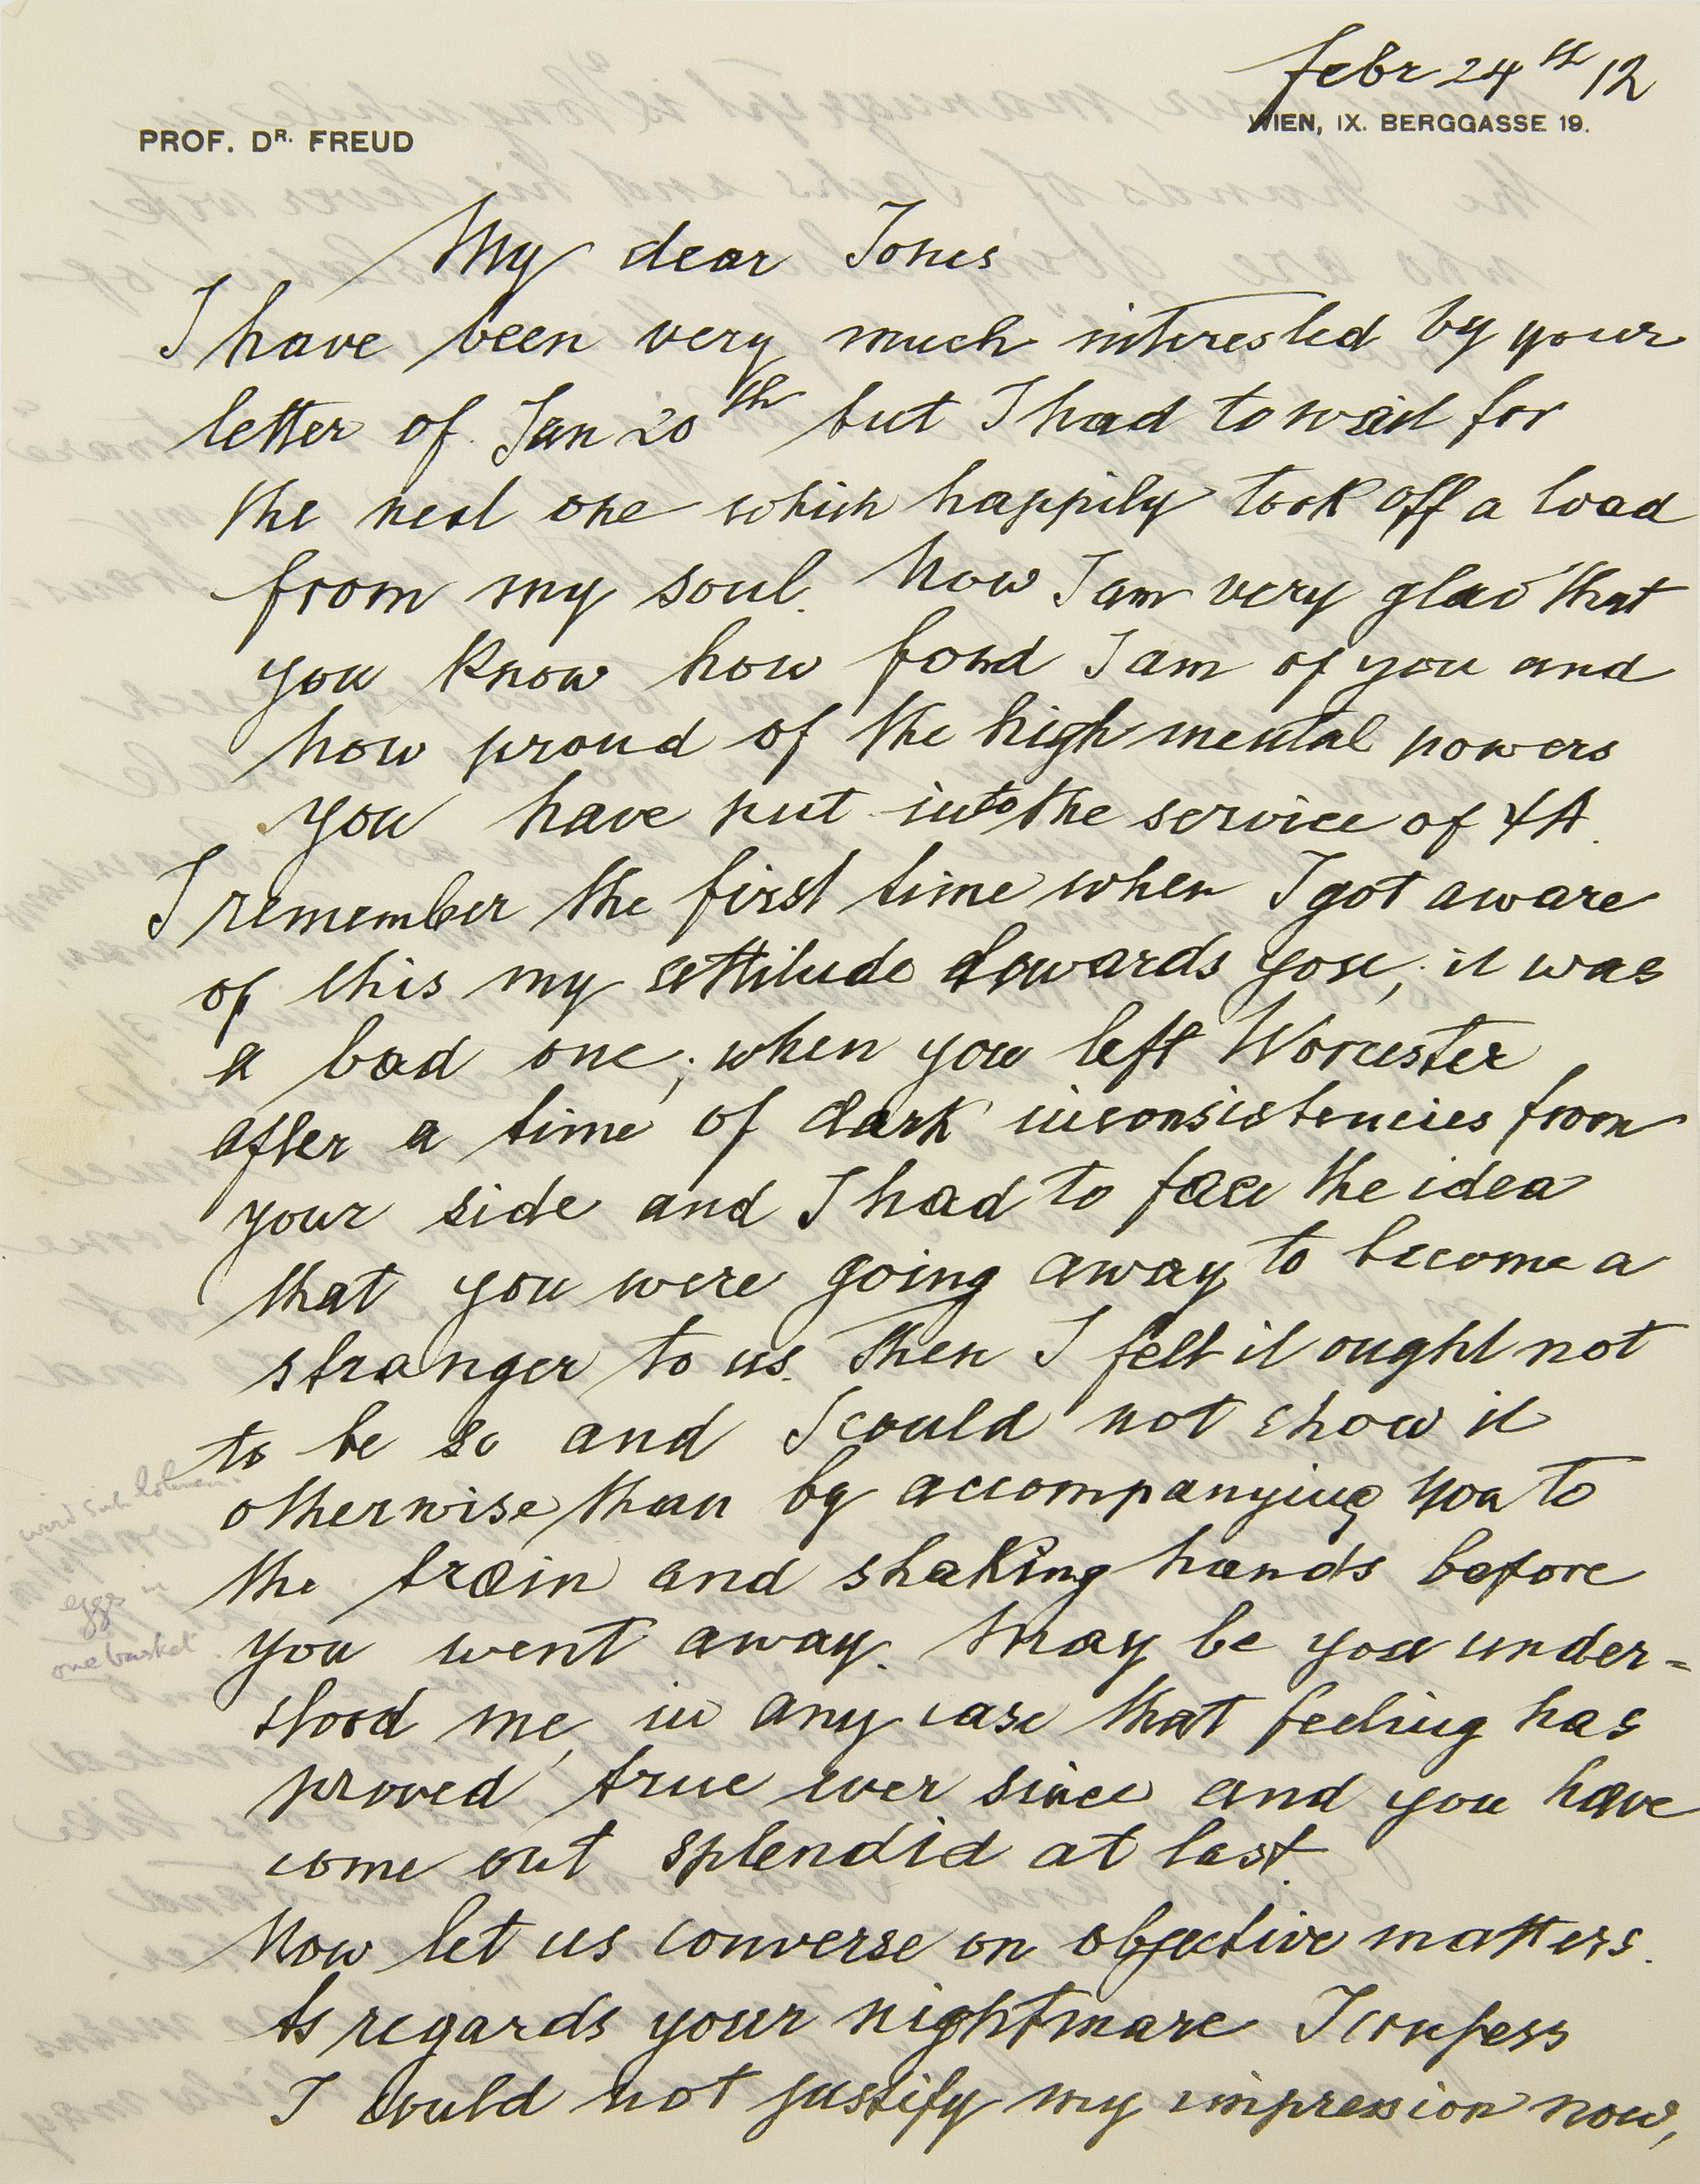 febr 24th 12
PROF. DR. FREUD
WIEN, IX. BERGGASSE 19.
My dear Jones
I have been very much interested by your
letter of Jan 20th but I had to wait for
the next one which happily took off a load
from my soul. Now I am very glad that
you know how fond I am of you and
how proud of the high mental powers
you have put into the service of ΨA.
I remember the first time when I got aware
of this my attitude towards you, it was
a bad one; when you left Worcester
after a time of dark inconsistencies from
your side and I had to face the idea
that you were going away to become a
stranger to us. Then I felt it ought not
to be so and I could not show it
otherwise than by accompanying you to
the train and shaking hands before
you went away. May be you under=
stood me, in any case that feeling has
proved true ever since and you have
come out splendid at last.
Now let us converse on objective matters.
As regards your nightmare I confess
I could not justify my impression now,
eggs in
one basket